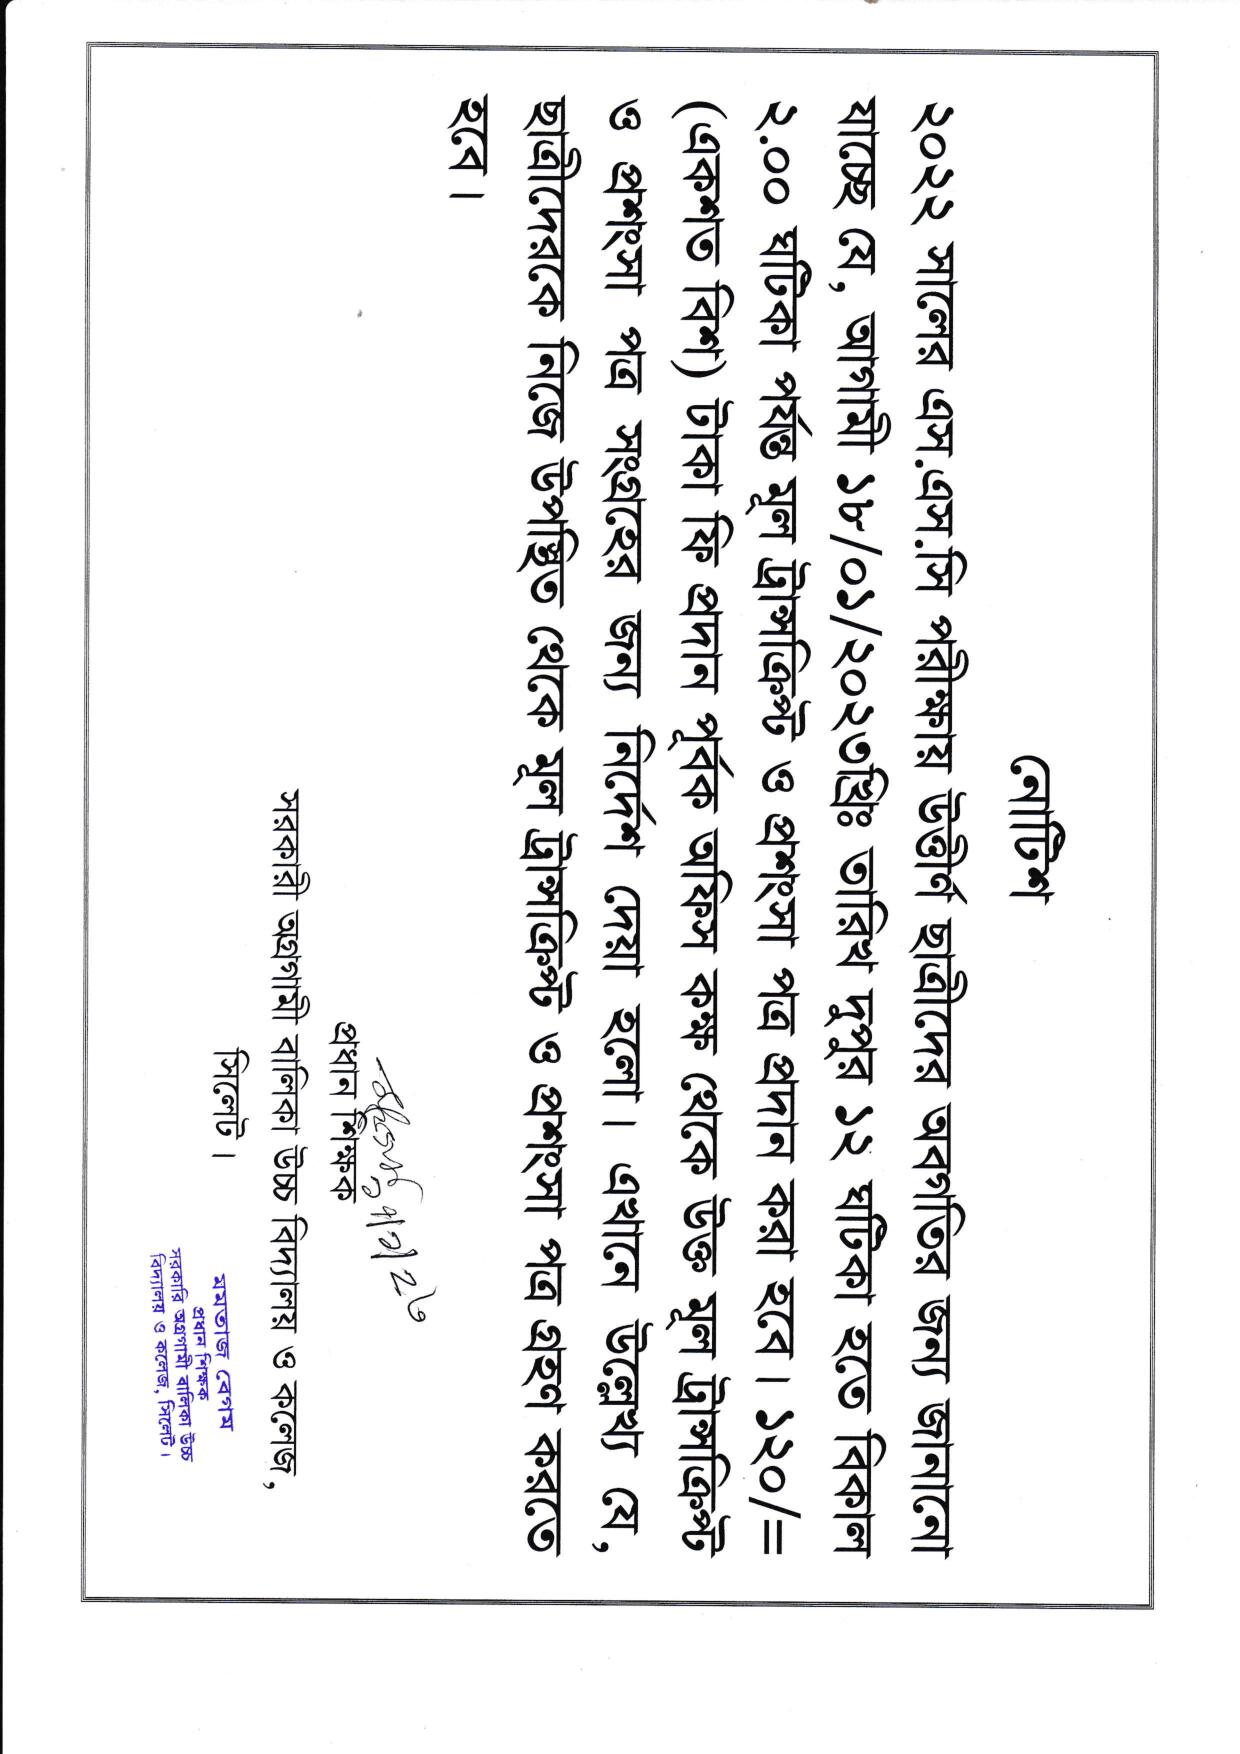 নোটিশ
২০২২ সালের এস.এস.সি পরীক্ষায় উত্তীর্ণ ছাত্রীদের অবগতির জন্য জানানো
যাচ্ছে যে, আগামী ১৮/০১/২০২৩খ্রিঃ তারিখ দুপুর ১২ ঘটিকা হতে বিকাল
২.০০ ঘটিকা পর্যন্ত মূল ট্রান্সক্রিপ্ট ও প্রশংসা পত্র প্রদান করা হবে। ১২০/=
(একশত বিশ) টাকা ফি প্রদান পূর্বক অফিস কক্ষ থেকে উক্ত মূল ট্রান্সক্রিপ্ট
ও প্রশংসা পত্র সংগ্রহের জন্য নির্দেশ দেয়া হলো। এখানে উল্লেখ্য যে,
ছাত্রীদেরকে নিজে উপস্থিত থেকে মূল ট্রান্সক্রিপ্ট ও প্রশংসা পত্র গ্রহণ করতে
হবে।
প্রধান শিক্ষক
সরকারী অগ্রগামী বালিকা উচ্চ বিদ্যালয় ও কলেজ,
সিলেট।
মমতাজ বেগম
প্রধান শিক্ষক
সরকারি অগ্রগামী বালিকা উচ্চ
বিদ্যালয় ও কলেজ, সিলেট।